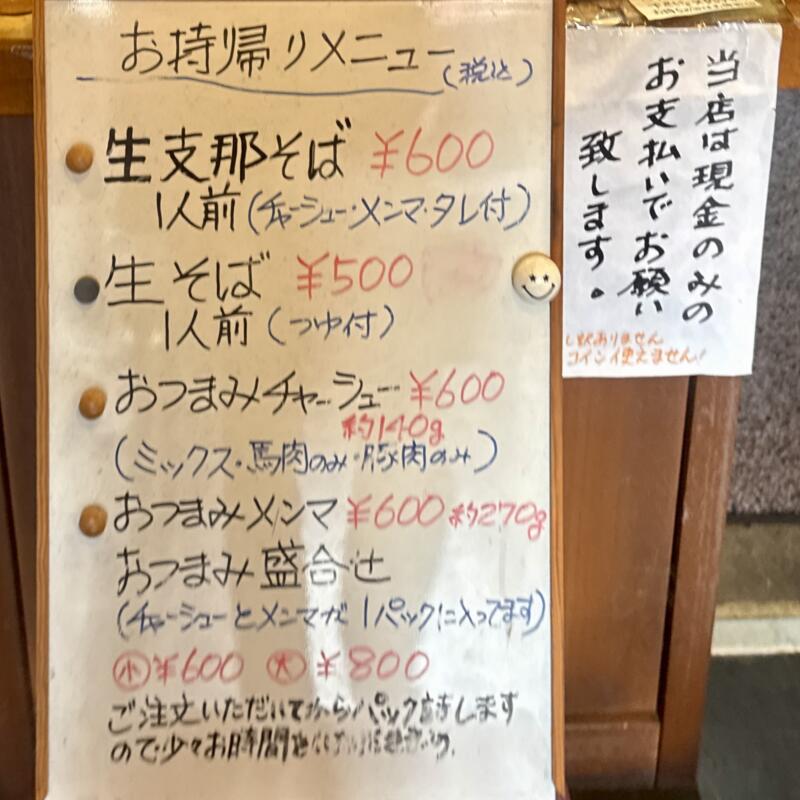 お持帰りメニュー
(税込)
生支那そば ¥600
1人前(チャーシュー・メンマ・タレ付)
生そば ¥500
1人前(つゆ付)
おつまみチャーシュー ¥600
約140g
(ミックス・馬肉のみ・豚肉のみ)
おつまみメンマ ¥600 約270g
おつまみ盛合せ
(チャーシューとメンマが1パックに入ってます)
小 ¥600 大 ¥800
ご注文いただいてからパック詰します
ので少々お時間を
当店は現金のみの
お支払いでお願い
致します。
し訳ありません
コイン 使えません!